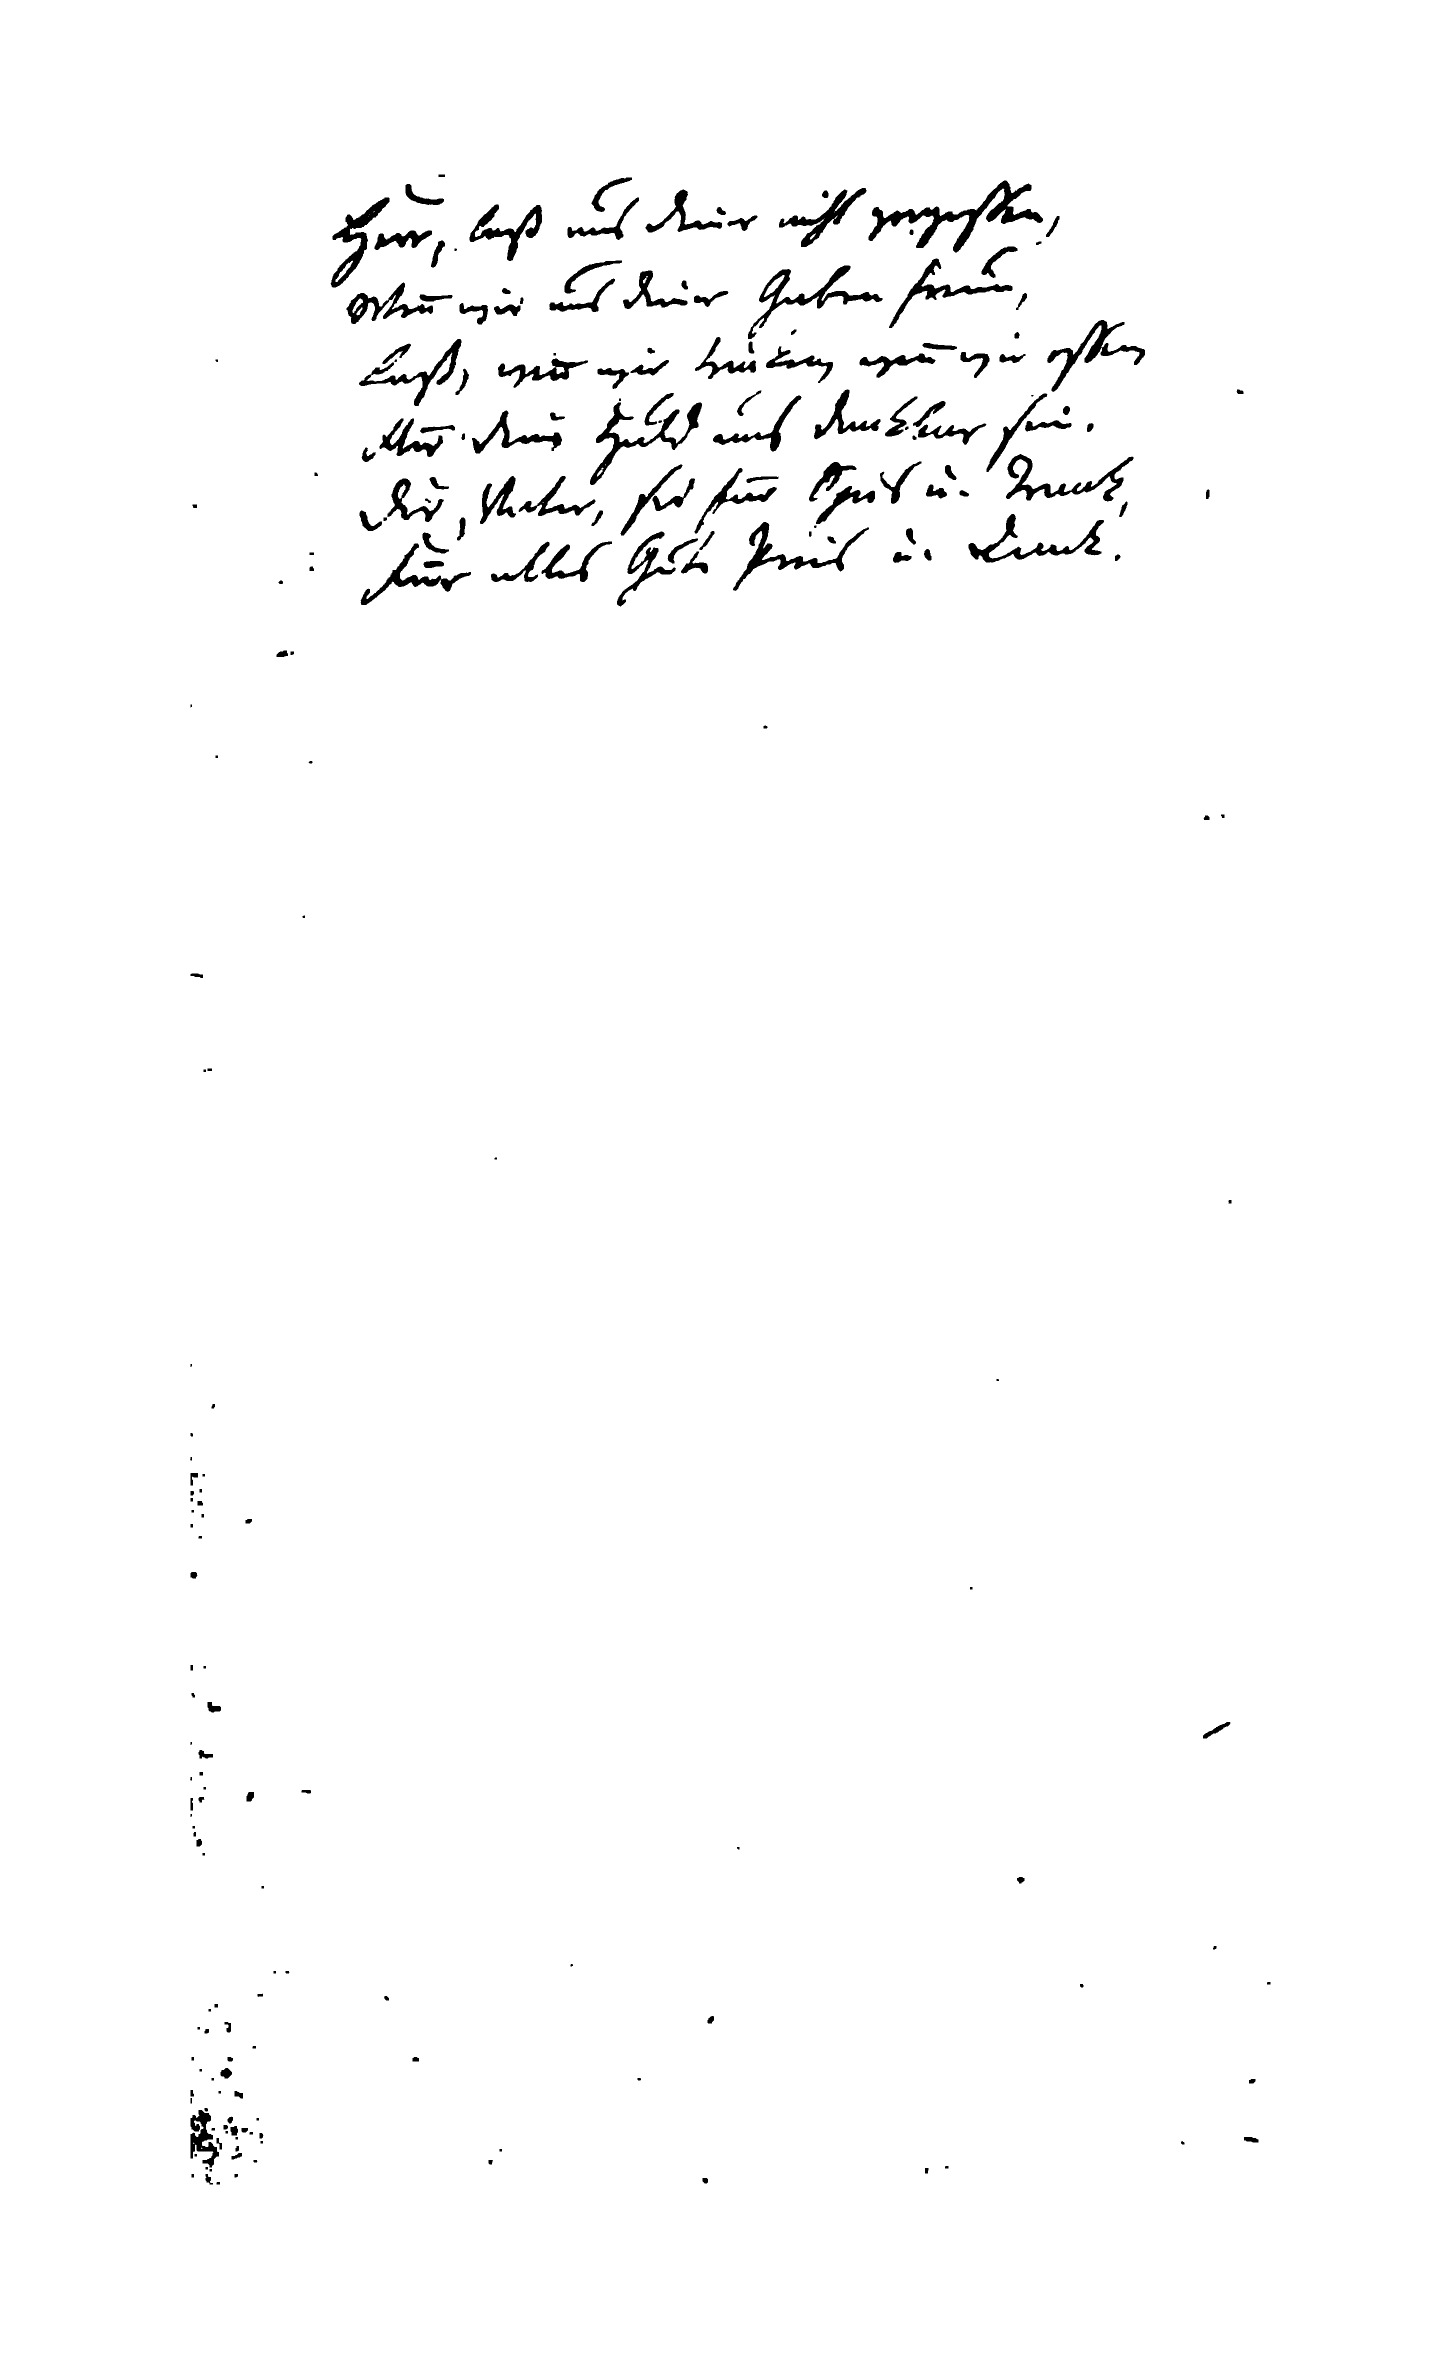 Herr, laß uns deiner nicht vergessen,
Wen̄ wir uns deiner Gaben freun,
Laß, wen̄ wir trinken, wen̄ wir essen
Für deine Huld uns dankbar sein.
Dir, Vater, sei für Speis u. Trank,
Für alles Gute Preis u. Dank.